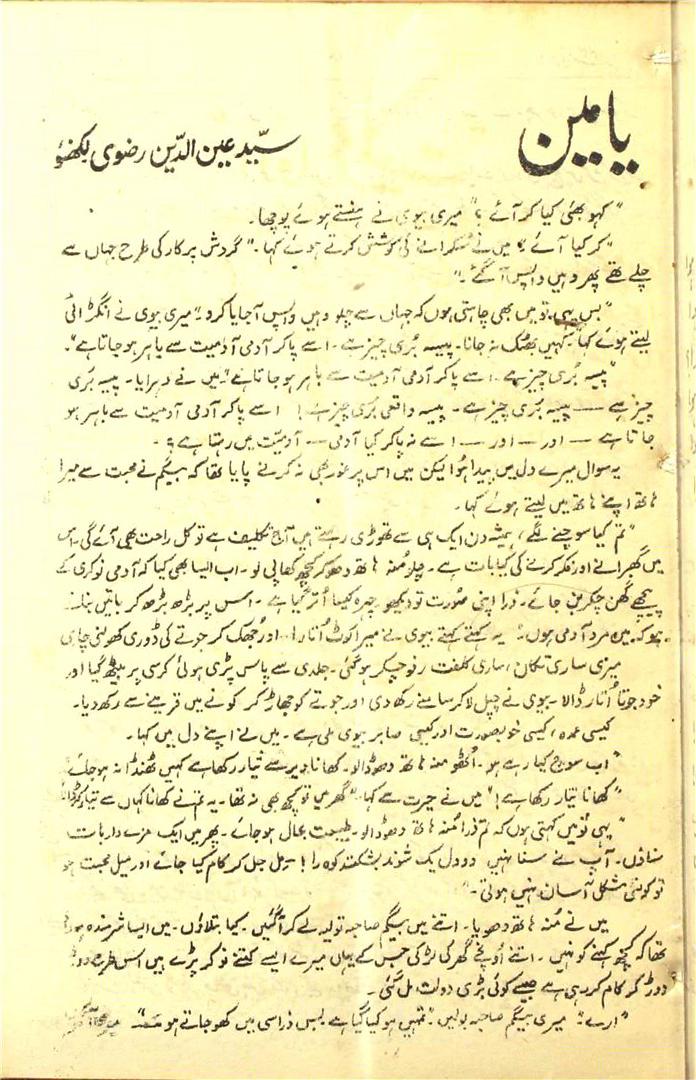 یامین
سیّد عین الدّین رضوی لکھنؤ
"کہو بھئی کیا کر آئے؟" میری بیوی نے ہنستے ہوئے پوچھا۔
"کر کیا آئے؟ میں نے مُسکرانے کی کوشش کرتے ہوئے کہا۔ "گردش پرکار کی طرح جہاں سے
چلے تھے پھر وہیں واپس آگئے۔"
"بس یہی تو میں بھی چاہتی ہوں کہ جہاں سے چلو وہیں واپس آجایا کرو" میری بیوی نے انگڑائی
لیتے ہوئے کہا۔ کہیں بھٹک نہ جانا۔ پیسہ بُری چیز ہے۔ اسے پاکر آدمی آدمیت سے باہر ہو جاتا ہے"۔
"پیسہ بُری چیز ہے۔ اسے پاکر آدمی آدمیت سے باہر ہو جاتا ہے" میں نے دہرایا۔ پیسہ بُری
چیز ہے — پیسہ بُری چیز ہے۔ پیسہ واقعی بُری چیز ہے! اسے پاکر آدمی آدمیت سے باہر ہو
جاتا ہے — اور — اور — اسے نہ پاکر کیا آدمی — آدمیّت میں رہتا ہے؟۔
یہ سوال میرے دل میں پیدا ہُوا لیکن میں اس پر غور بھی نہ کرنے پایا تھا کہ بیگم نے محبت سے میرا
ہاتھ اپنے ہاتھ میں لیتے ہوئے کہا۔
"تم کیا سوچنے لگے، ہمیشہ دن ایک ہی سے تھوڑی رہتے ہیں آج تکلیف ہے تو کل راحت بھی آئے گی۔ اس
میں گھبرانے اور فکر کرنے کی کیا بات ہے۔ چلو مُنہ ہاتھ دھو کر کچھ کھا پی لو۔ اب ایسا بھی کیا کہ آدمی نوکری کے
پیچھے گھن چکر بن جائے۔ ذرا اپنی صُورت تو دیکھو چہرہ کیسا اُتر گیا ہے۔ اس پر بڑھ بڑھ کر باتیں بناتے
ہو کہ میں مرد آدمی ہوں"۔ یہ کہتے کہتے بیوی نے میرا کوٹ اُتارا... اور جُھک کر جوتے کی ڈوری کھولنی چاہی
میری ساری تکان، ساری کلفت رفوچکر ہوگئی۔ جلدی سے پاس پڑی ہوئی کرسی پر بیٹھ گیا اور
خود جوتا اُتار ڈالا۔ بیوی نے چپل لاکر سامنے رکھ دی اور جوتے کو جھاڑ کر کونے میں قرینے سے رکھ دیا۔
کیسی عمدہ، کیسی خوبصورت اور کیسی صابر بیوی ملی ہے۔ میں نے اپنے دل میں کہا۔
"اب سوچ کیا رہے ہو۔ اُٹھو منہ ہاتھ دھو ڈالو۔ کھانا دیر سے تیار رکھا ہے کہیں ٹھنڈا نہ ہو جائے
"کھانا تیار رکھا ہے!" میں نے حیرت سے کہا۔ "گھر میں تو کچھ بھی نہ تھا۔ یہ تم نے کھانا کہاں سے تیار
"یہی تو میں کہتی ہوں کہ تم ذرا مُنہ ہاتھ دھو ڈالو۔ طبیعت بحال ہو جائے۔ پھر میں ایک مزے دار بات
سناؤں۔ آپ نے سنا نہیں دو دل یک شوند بشکنند کوہ را! مِل جل کر کام کیا جائے اور میل محبت ہو
تو کوئی مشکل آسان نہیں ہوتی۔"
میں نے مُنہ ہاتھ دھویا۔ اتنے میں بیگم صاحبہ تولیہ لے کر آگئیں۔ کیا بتلاؤں۔ میں ایسا شرمندہ ہو رہا
تھا کہ کچھ کہنے کو نہیں۔ اتنے اُونچے گھر کی لڑکی جس کے یہاں میرے ایسے کتنے نوکر پڑے ہیں اس طرح دوڑ
دوڑ کر کام کر رہی ہے جیسے کوئی بڑی دولت مل گئی۔
"ارے" میری بیگم صاحبہ بولیں۔ "تمہیں ہو کیا گیا ہے بس ذراسی میں کھو جاتے ہو